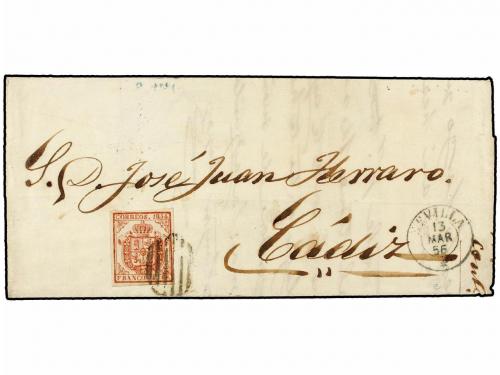 S. D. José Juan Herraro.
CORREOS. 1854
FRANCO
Cádiz
SEVILLA
13
MAR
56